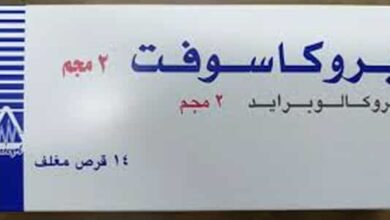 بروكاسوفت ٢ مجم
بروكالوبرايد ٢ مجم
١٤ قرص مغلف